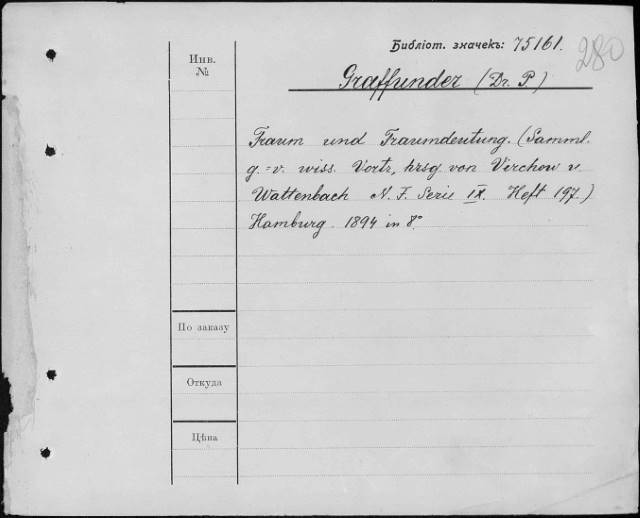 Библіот. значекъ: 75161.
280
Инв.
№
Graffunder (Dr. P.)
Traum und Traumdeutung. (Samml.
g.=v. wiss. Vortr., hrsg. von Virchow u.
Wattenbach N. F. Serie IX. Heft 197.)
Hamburg. 1894 in 8°
По заказу
Откуда
Цѣна